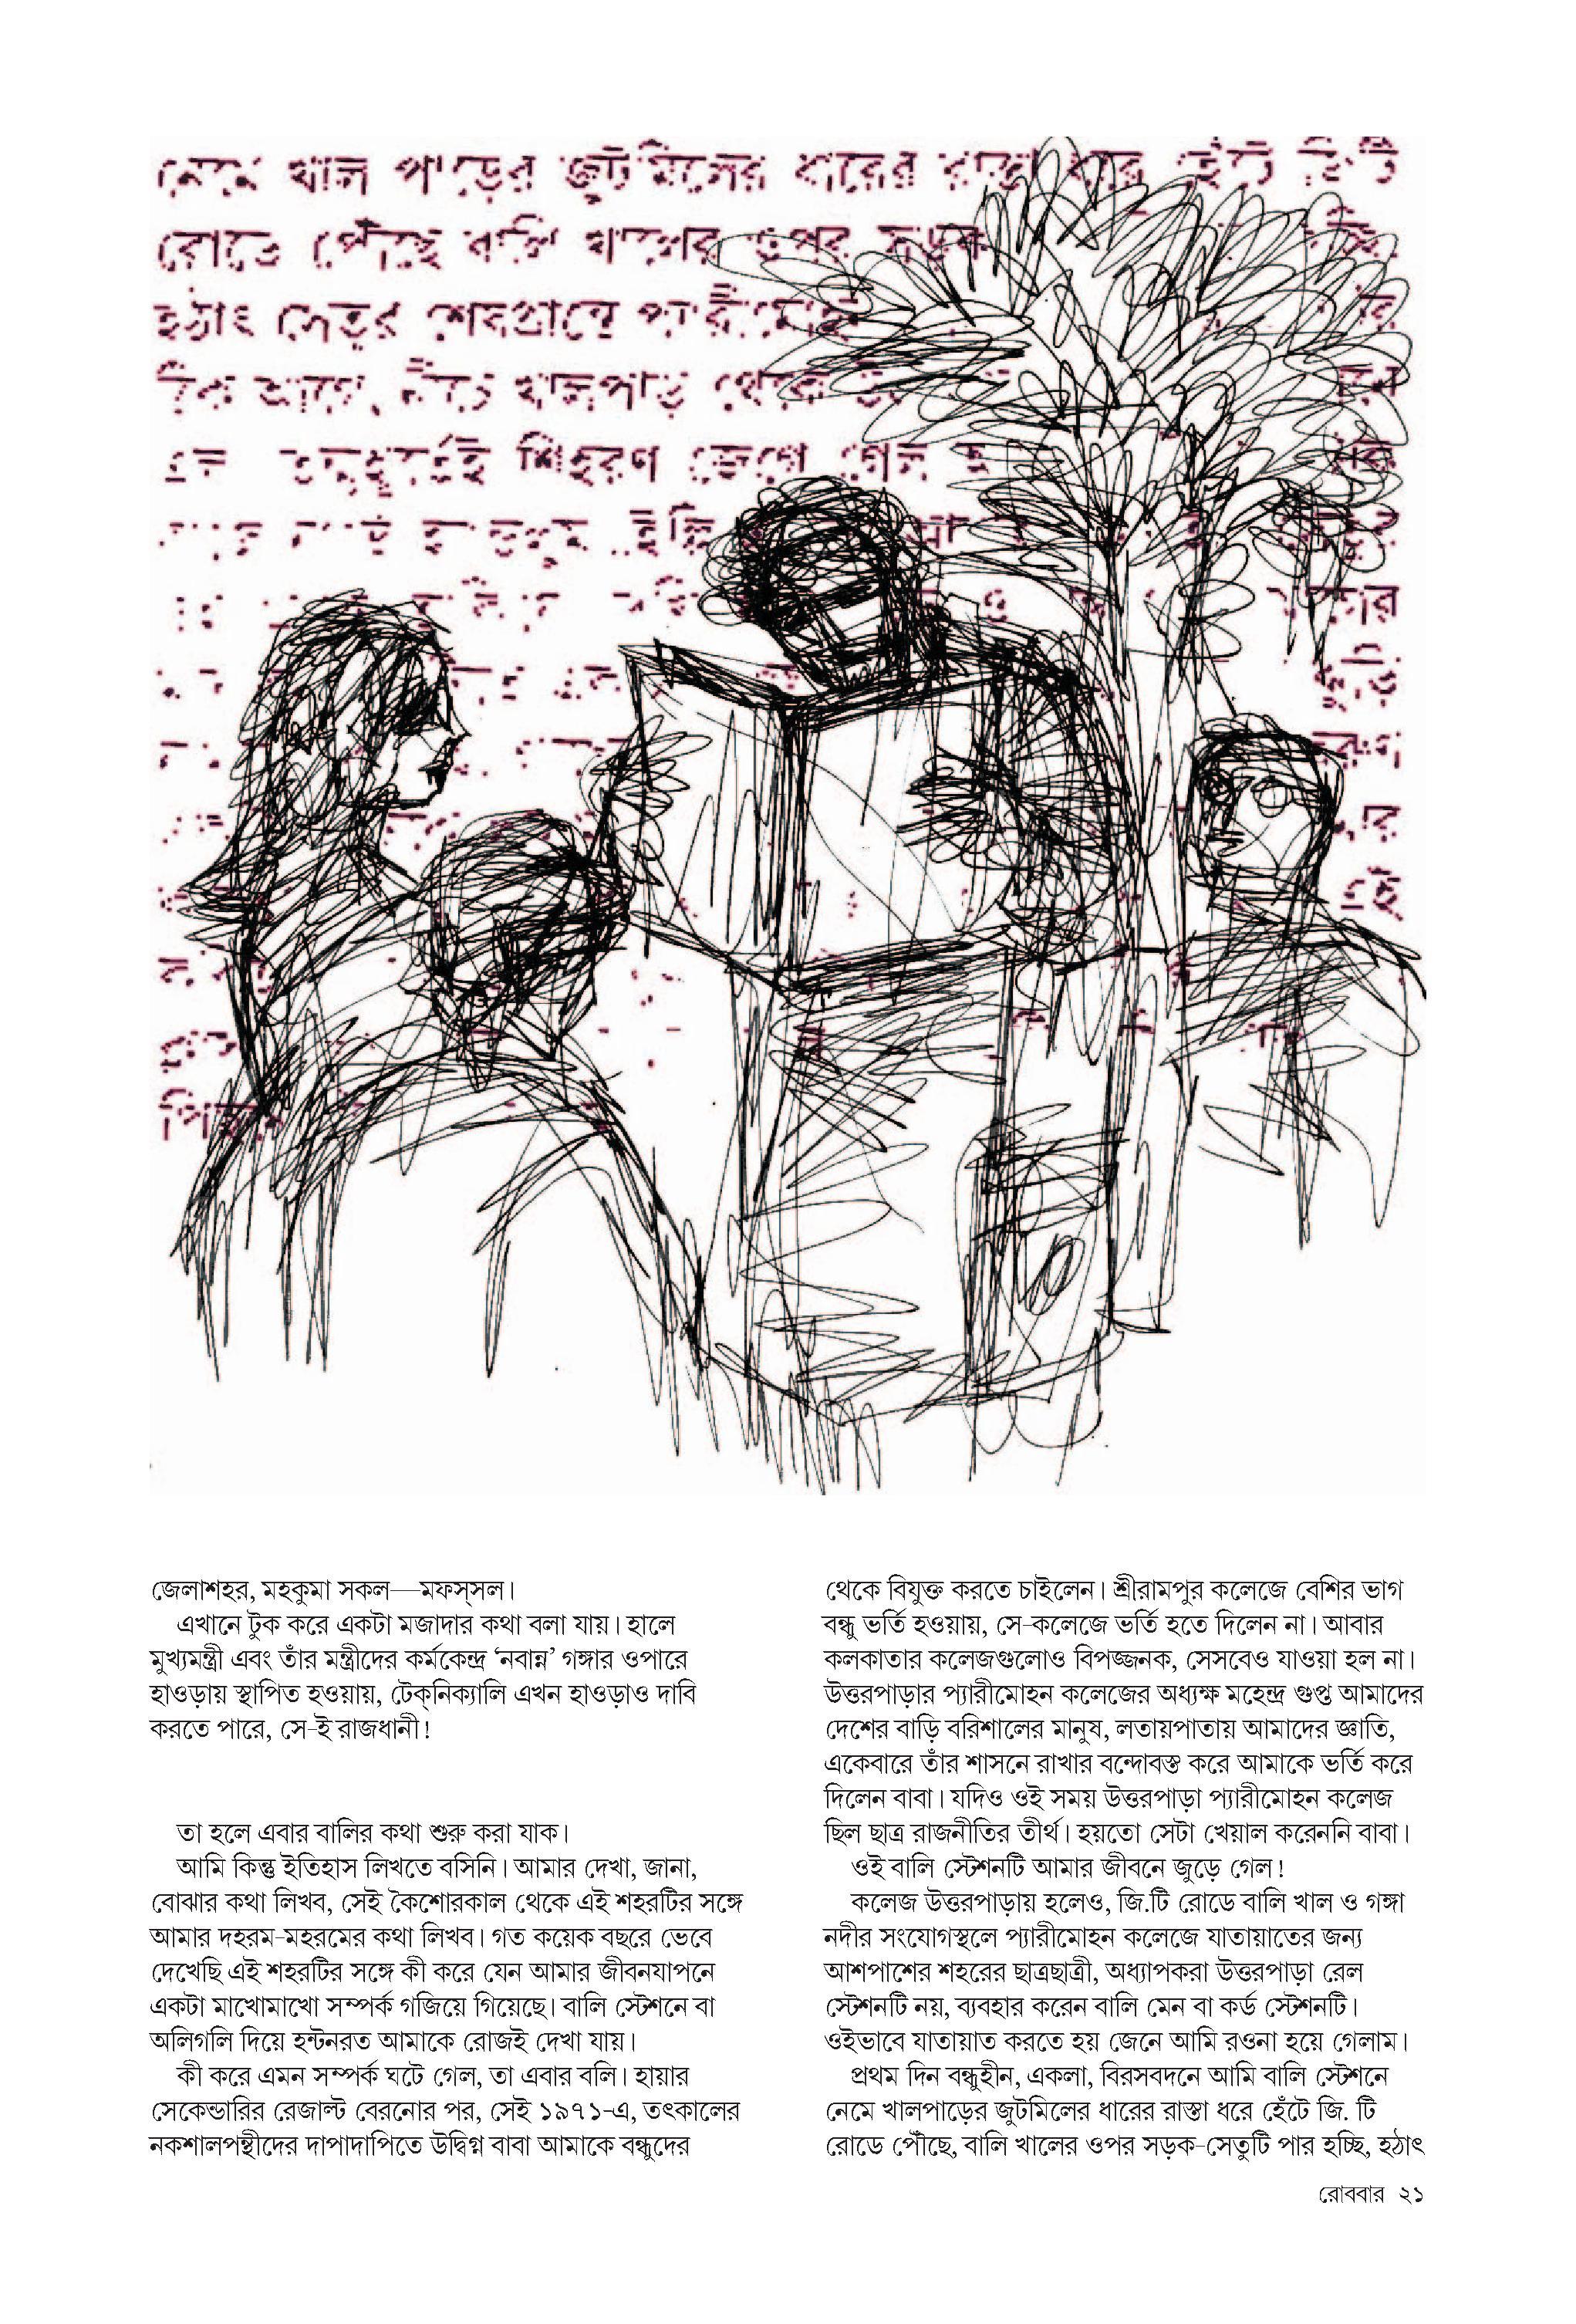 খাল পাড়ের জুটমিলের ধারের
রোডে পৌঁছে বালি খালের ওপর সড়ক
হঠাৎ সেতুর শেষপ্রান্তে
খালপাড় থেকে
শিহরণ জেগে গেল
জেলাশহর, মহকুমা সকল—মফস্‌সল।
এখানে টুক করে একটা মজাদার কথা বলা যায়। হালে
মুখ্যমন্ত্রী এবং তাঁর মন্ত্রীদের কর্মকেন্দ্র ‘নবান্ন’ গঙ্গার ওপারে
হাওড়ায় স্থাপিত হওয়ায়, টেক্‌নিক্যালি এখন হাওড়াও দাবি
করতে পারে, সে-ই রাজধানী!
তা হলে এবার বালির কথা শুরু করা যাক।
আমি কিন্তু ইতিহাস লিখতে বসিনি। আমার দেখা, জানা,
বোঝার কথা লিখব, সেই কৈশোরকাল থেকে এই শহরটির সঙ্গে
আমার দহরম-মহরমের কথা লিখব। গত কয়েক বছরে ভেবে
দেখেছি এই শহরটির সঙ্গে কী করে যেন আমার জীবনযাপনে
একটা মাখোমাখো সম্পর্ক গজিয়ে গিয়েছে। বালি স্টেশনে বা
অলিগলি দিয়ে হন্টনরত আমাকে রোজই দেখা যায়।
কী করে এমন সম্পর্ক ঘটে গেল, তা এবার বলি। হায়ার
সেকেন্ডারির রেজাল্ট বেরনোর পর, সেই ১৯৭১-এ, তৎকালের
নকশালপন্থীদের দাপাদাপিতে উদ্বিগ্ন বাবা আমাকে বন্ধুদের
থেকে বিযুক্ত করতে চাইলেন। শ্রীরামপুর কলেজে বেশির ভাগ
বন্ধু ভর্তি হওয়ায়, সে-কলেজে ভর্তি হতে দিলেন না। আবার
কলকাতার কলেজগুলোও বিপজ্জনক, সেসবেও যাওয়া হল না।
উত্তরপাড়ার প্যারীমোহন কলেজের অধ্যক্ষ মহেন্দ্র গুপ্ত আমাদের
দেশের বাড়ি বরিশালের মানুষ, লতায়পাতায় আমাদের জ্ঞাতি,
একেবারে তাঁর শাসনে রাখার বন্দোবস্ত করে আমাকে ভর্তি করে
দিলেন বাবা। যদিও ওই সময় উত্তরপাড়া প্যারীমোহন কলেজ
ছিল ছাত্র রাজনীতির তীর্থ। হয়তো সেটা খেয়াল করেননি বাবা।
ওই বালি স্টেশনটি আমার জীবনে জুড়ে গেল!
কলেজ উত্তরপাড়ায় হলেও, জি.টি রোডে বালি খাল ও গঙ্গা
নদীর সংযোগস্থলে প্যারীমোহন কলেজে যাতায়াতের জন্য
আশপাশের শহরের ছাত্রছাত্রী, অধ্যাপকরা উত্তরপাড়া রেল
স্টেশনটি নয়, ব্যবহার করেন বালি মেন বা কর্ড স্টেশনটি।
ওইভাবে যাতায়াত করতে হয় জেনে আমি রওনা হয়ে গেলাম।
প্রথম দিন বন্ধুহীন, একলা, বিরসবদনে আমি বালি স্টেশনে
নেমে খালপাড়ের জুটমিলের ধারের রাস্তা ধরে হেঁটে জি. টি
রোডে পৌঁছে, বালি খালের ওপর সড়ক-সেতুটি পার হচ্ছি, হঠাৎ
রোববার ২১